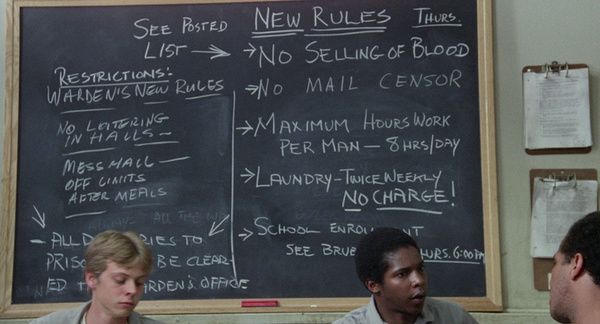 SEE POSTED
LIST →
RESTRICTIONS:
WARDEN'S NEW RULES
NO LOITERING
IN HALLS —
MESS HALL —
OFF LIMITS
AFTER MEALS
ALWAYS ALL THE
— ALL RIES TO
PRIS BE CLEAR-
ED T ARDEN'S OFFICE
NEW RULES THURS.
→ NO SELLING OF BLOOD
→ NO MAIL CENSOR
→ MAXIMUM HOURS WORK
PER MAN — 8 HRS/DAY
→ LAUNDRY - TWICE WEEKLY
NO CHARGE!
→ SCHOOL ENROLL
SEE BRU HURS. 6:00 PM